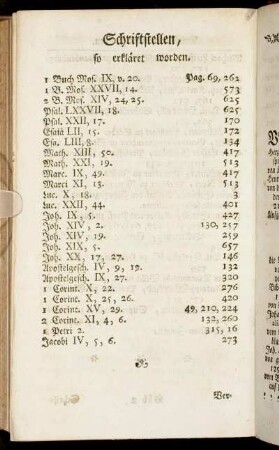 Schriftstellen,
so erkläret worden.
1 Buch Mos. IX, v. 20. Pag. 69, 262
1 B. Mos. XXVII, 14. 573
2 B. Mos. XIV, 24, 25. 625
Psal. LXXVII, 18. 625
Psal. XXII, 17. 170
Esaiä LII, 15. 172
Esa. LIII, 8. 134
Math. XIII, 50. 417
Math. XXI, 19. 513
Marc. IX, 49. 417
Marci XI, 13. 513
Luc. X, 18. 3
Luc. XXII, 44. 401
Joh. IX, 5. 427
Joh. XIV, 2. 130, 257
Joh. XIV, 19. 259
Joh. XIX, 5. 657
Joh. XX, 17, 27. 146
Apostelgesch. IV, 9, 19. 132
Apostelgesch. IX, 27. 320
1 Corint. X, 22. 276
1 Corint. X, 25, 26. 420
1 Corint. XV, 29. 49, 210, 224
2 Corint. XI, 4, 6. 132, 260
1 Petri 2. 315, 16
Jacobi IV, 5, 6. 273
Ver-